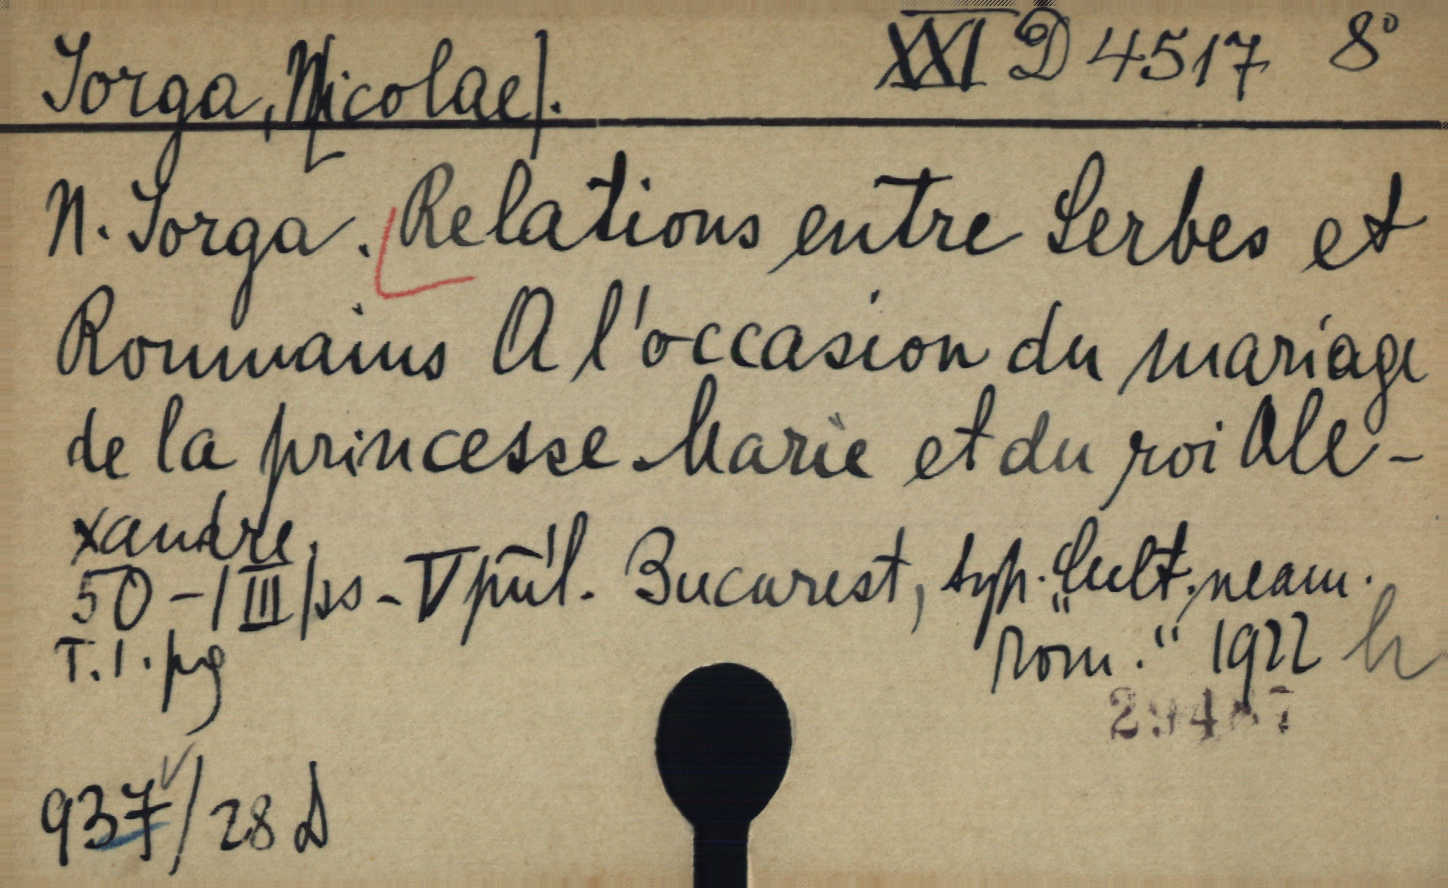 Iorga, N[icolae].
XXI D 4517 8°
N. Iorga. Relations entre Serbes et
Roumains A l'occasion du mariage
de la princesse Marie et du roi Ale-
xandre.
50 - / III / ss - V
Bucarest, typ. "Cult. neam.
Rom." 1922
T. I. pg
937/28 D